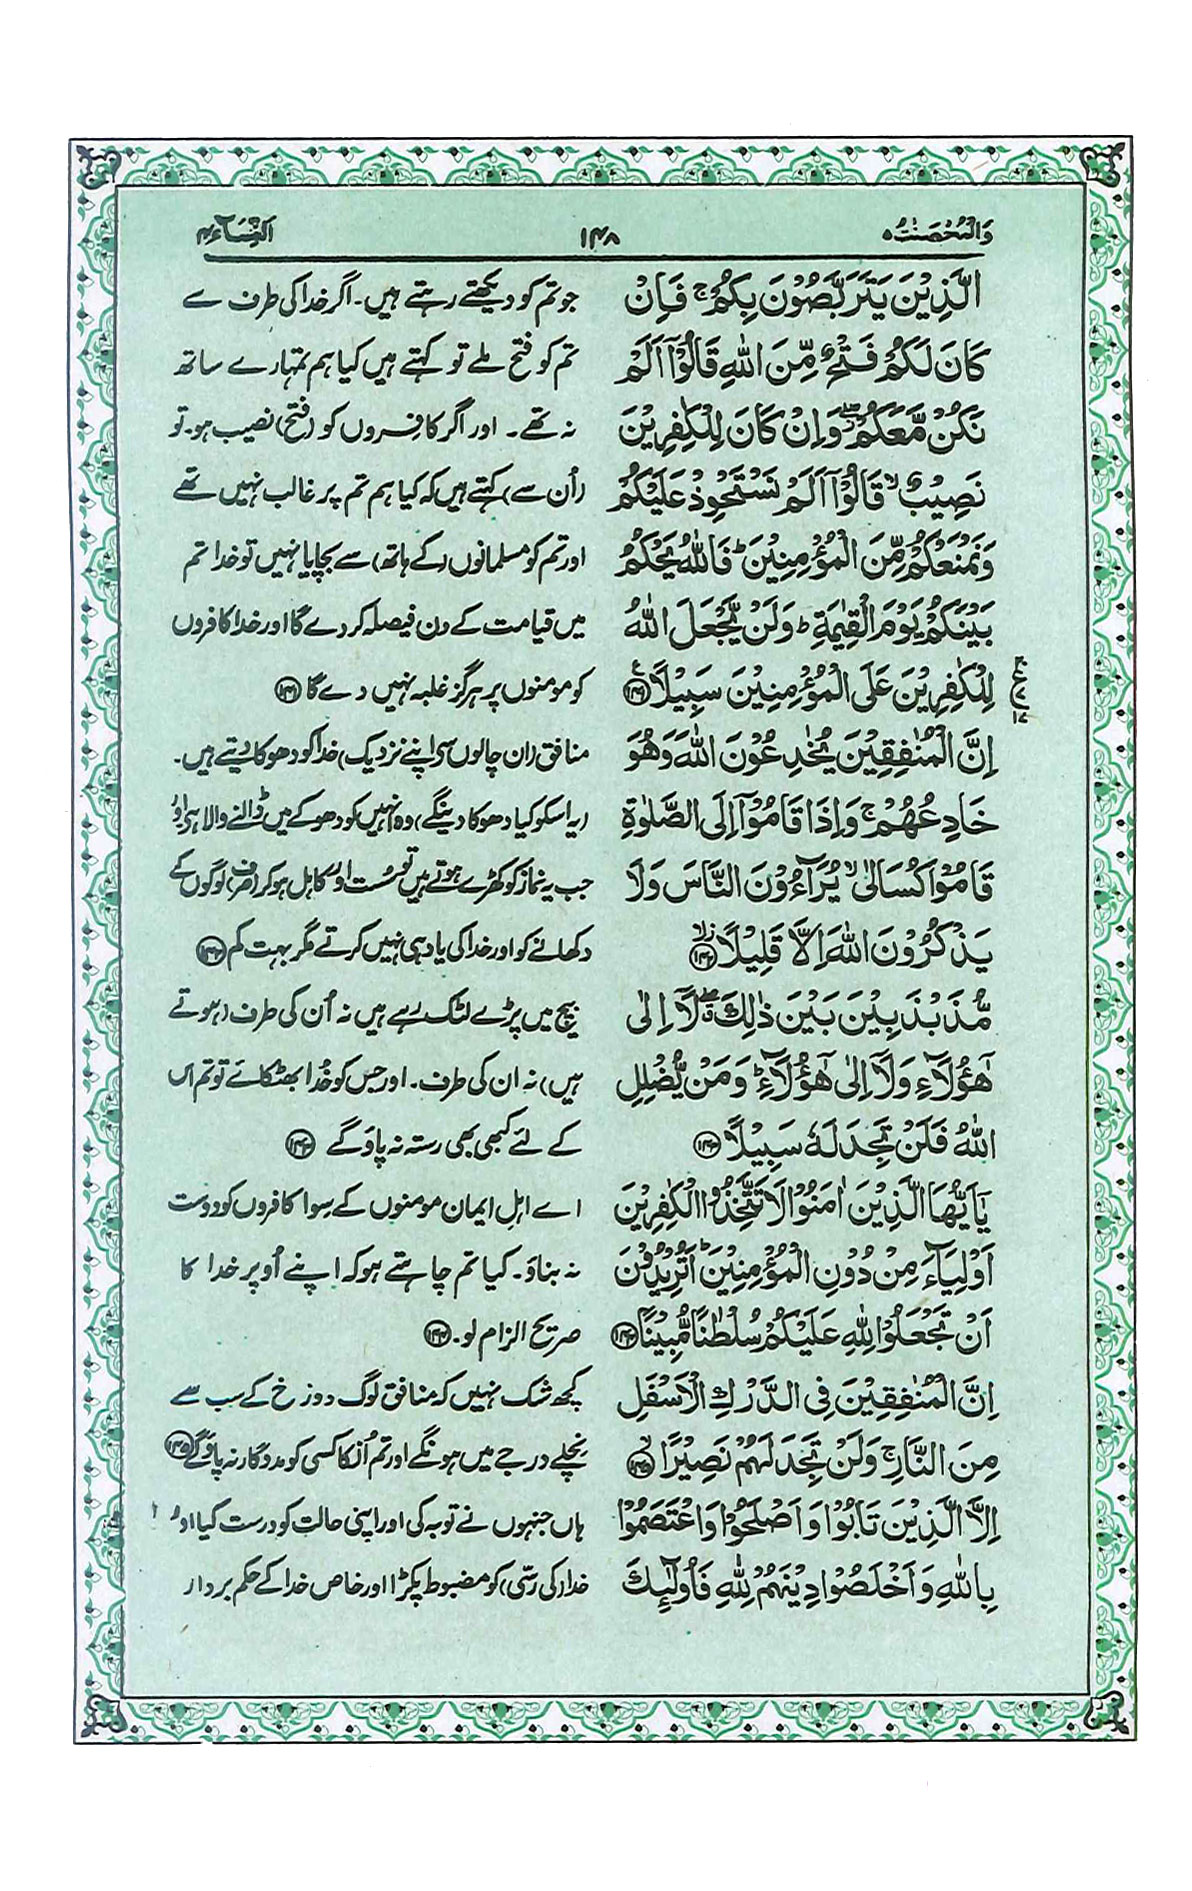 وَالْمُحْصَنٰتُ ٥
١٤٨
اَلنِّسَآء ٤
الَّذِيْنَ يَتَرَبَّصُوْنَ بِكُمْ ۚ فَاِنْ
كَانَ لَكُمْ فَتْحٌ مِّنَ اللّٰهِ قَالُوْۤا اَلَمْ
نَكُنْ مَّعَكُمْ ۖ وَاِنْ كَانَ لِلْكٰفِرِيْنَ
نَصِيْبٌ ۙ قَالُوْۤا اَلَمْ نَسْتَحْوِذْ عَلَيْكُمْ
وَنَمْنَعْكُمْ مِّنَ الْمُؤْمِنِيْنَ ؕ فَاللّٰهُ يَحْكُمُ
بَيْنَكُمْ يَوْمَ الْقِيٰمَةِ ؕ وَلَنْ يَّجْعَلَ اللّٰهُ
لِلْكٰفِرِيْنَ عَلَى الْمُؤْمِنِيْنَ سَبِيْلًا ﴿١٤١﴾
اِنَّ الْمُنٰفِقِيْنَ يُخٰدِعُوْنَ اللّٰهَ وَهُوَ
خَادِعُهُمْ ۚ وَاِذَا قَامُوْۤا اِلَى الصَّلٰوةِ
قَامُوْا كُسَالٰى ۙ يُرَآءُوْنَ النَّاسَ وَلَا
يَذْكُرُوْنَ اللّٰهَ اِلَّا قَلِيْلًا ﴿١٤٢﴾
مُّذَبْذَبِيْنَ بَيْنَ ذٰلِكَ ۖ لَاۤ اِلٰى
هٰۤؤُلَآءِ وَلَاۤ اِلٰى هٰۤؤُلَآءِ ؕ وَمَنْ يُّضْلِلِ
اللّٰهُ فَلَنْ تَجِدَ لَهٗ سَبِيْلًا ﴿١٤٣﴾
يٰۤاَيُّهَا الَّذِيْنَ اٰمَنُوْا لَا تَتَّخِذُوا الْكٰفِرِيْنَ
اَوْلِيَآءَ مِنْ دُوْنِ الْمُؤْمِنِيْنَ ؕ اَتُرِيْدُوْنَ
اَنْ تَجْعَلُوْا لِلّٰهِ عَلَيْكُمْ سُلْطٰنًا مُّبِيْنًا ﴿١٤٤﴾
اِنَّ الْمُنٰفِقِيْنَ فِى الدَّرْكِ الْاَسْفَلِ
مِنَ النَّارِ ۚ وَلَنْ تَجِدَ لَهُمْ نَصِيْرًا ﴿١٤٥﴾
اِلَّا الَّذِيْنَ تَابُوْا وَاَصْلَحُوْا وَاعْتَصَمُوْا
بِاللّٰهِ وَاَخْلَصُوْا دِيْنَهُمْ لِلّٰهِ فَاُولٰٓئِكَ
جو تم کو دیکھتے رہتے ہیں۔ اگر خدا کی طرف سے
تم کو فتح ملے تو کہتے ہیں کیا ہم تمہارے ساتھ
نہ تھے۔ اور اگر کافروں کو (فتح) نصیب ہو۔ تو
(اُن سے) کہتے ہیں کہ کیا ہم تم پر غالب نہیں تھے
اور تم کو مسلمانوں (کے ہاتھ) سے بچایا نہیں تو خدا تم
میں قیامت کے دن فیصلہ کر دے گا اور خدا کافروں
کو مومنوں پر ہرگز غلبہ نہیں دے گا ﴿١٤١﴾
منافق (ان چالوں سے اپنے نزدیک) خدا کو دھوکا دیتے ہیں۔
(یہ اسکو کیا دھوکا دینگے) وہ انہیں کو دھوکے میں ڈالنے والا ہے اور
جب یہ نماز کو کھڑے ہوتے ہیں تو سست اور کاہل ہو کر (صرف) لوگوں کے
دکھانے کو اور خدا کی یاد ہی نہیں کرتے مگر بہت کم ﴿١٤٢﴾
بیچ میں پڑے لٹک رہے ہیں نہ اُن کی طرف (ہوتے
ہیں) نہ ان کی طرف۔ اور جس کو خُدا بھٹکائے تو تم اس
کے لئے کبھی بھی رستہ نہ پاؤ گے ﴿١٤٣﴾
اے اہل ایمان مومنوں کے سِوا کافروں کو دوست
نہ بناؤ۔ کیا تم چاہتے ہو کہ اپنے اُوپر خدا کا
صریح الزام لو۔ ﴿١٤٤﴾
کچھ شک نہیں کہ منافق لوگ دوزخ کے سب سے
نچلے درجے میں ہونگے اور تم اُن کا کسی کو مددگار نہ پاؤ گے ﴿١٤٥﴾
ہاں جنہوں نے توبہ کی اور اپنی حالت کو درست کیا اور
خدا (کی رسّی) کو مضبوط پکڑا اور خاص خدا کے حکم بردار